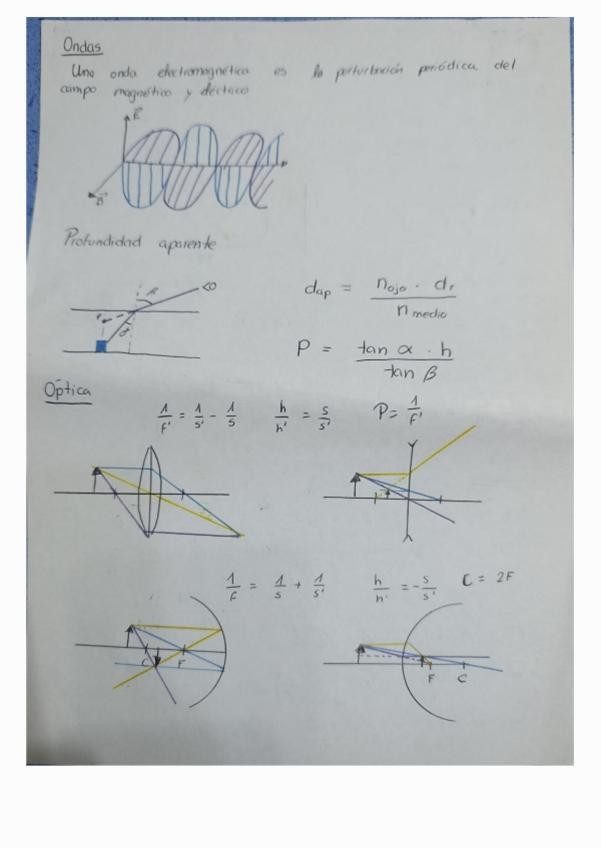 Ondas
Una onda electromagnética es la perturbación periódica del
campo magnético y eléctrico
E
B
Profundidad aparente
d_ap = n_ojo · d_r / n_medio
P = tan α · h / tan β
β
α
Óptica
1/f' = 1/s' - 1/s h/h' = s/s' P = 1/f'
1/f = 1/s + 1/s' h/h' = -s/s' C = 2F
C F
F C